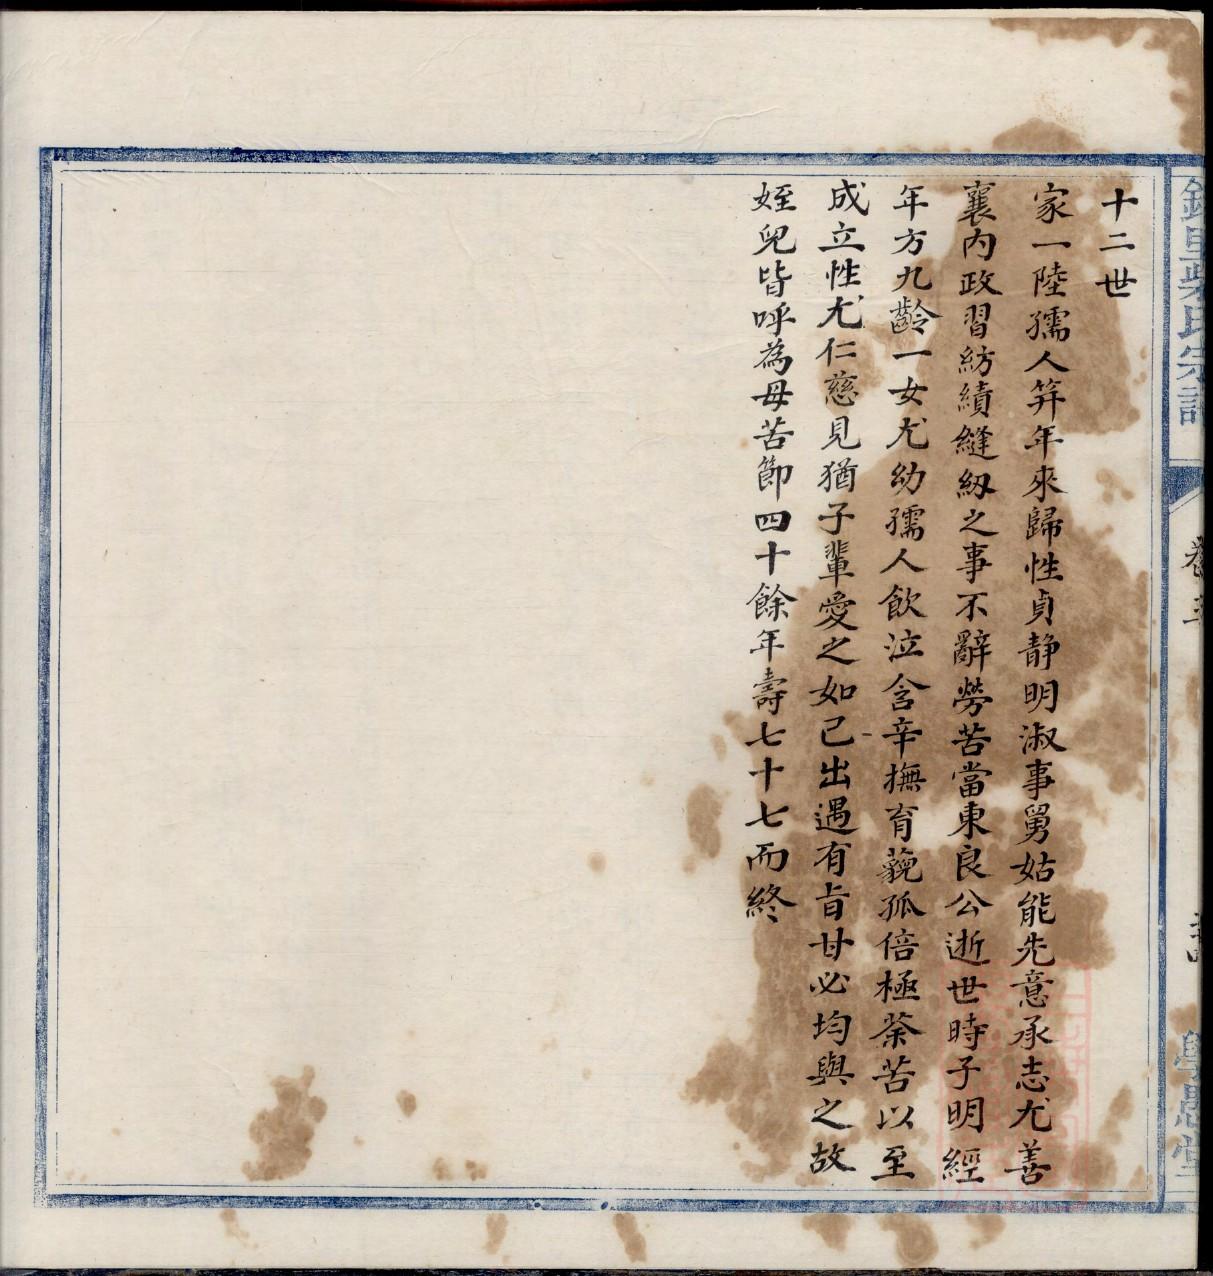 十二世
家一陸孺人笄年來歸性貞静明淑事舅姑能先意承志尤善
襄内政習紡績縫紉之事不辭勞苦當東良公逝世時子明經
年方九齡一女尤幼孺人飲泣含辛撫育藐孤倍極荼苦以至
成立性尤仁慈見猶子輩愛之如己出遇有旨甘必均與之故
姪兒皆呼為母苦節四十餘年壽七十七而終
氏宗譜
學愚堂